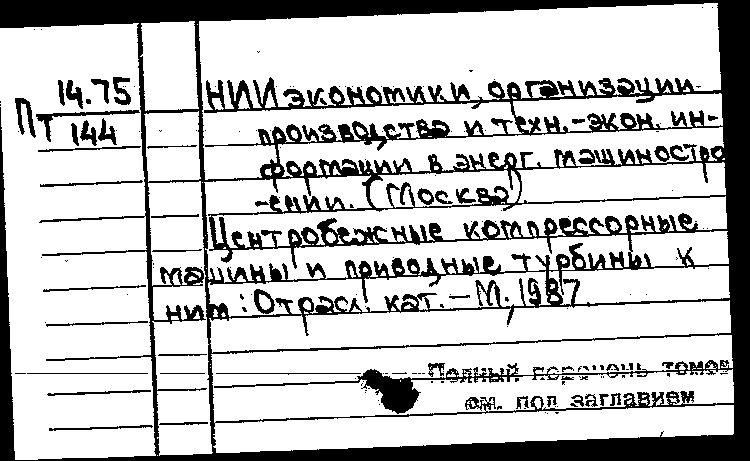 14.75
Пт 144
НИИ экономики, организации
производства и техн.-экон. ин-
формации в энерг. машиностро
-ении. (Москва).
Центробежные компрессорные
машины и приводные турбины к
ним: Отрасл. кат. - М., 1987.
Полный перечень томов
см. под заглавием